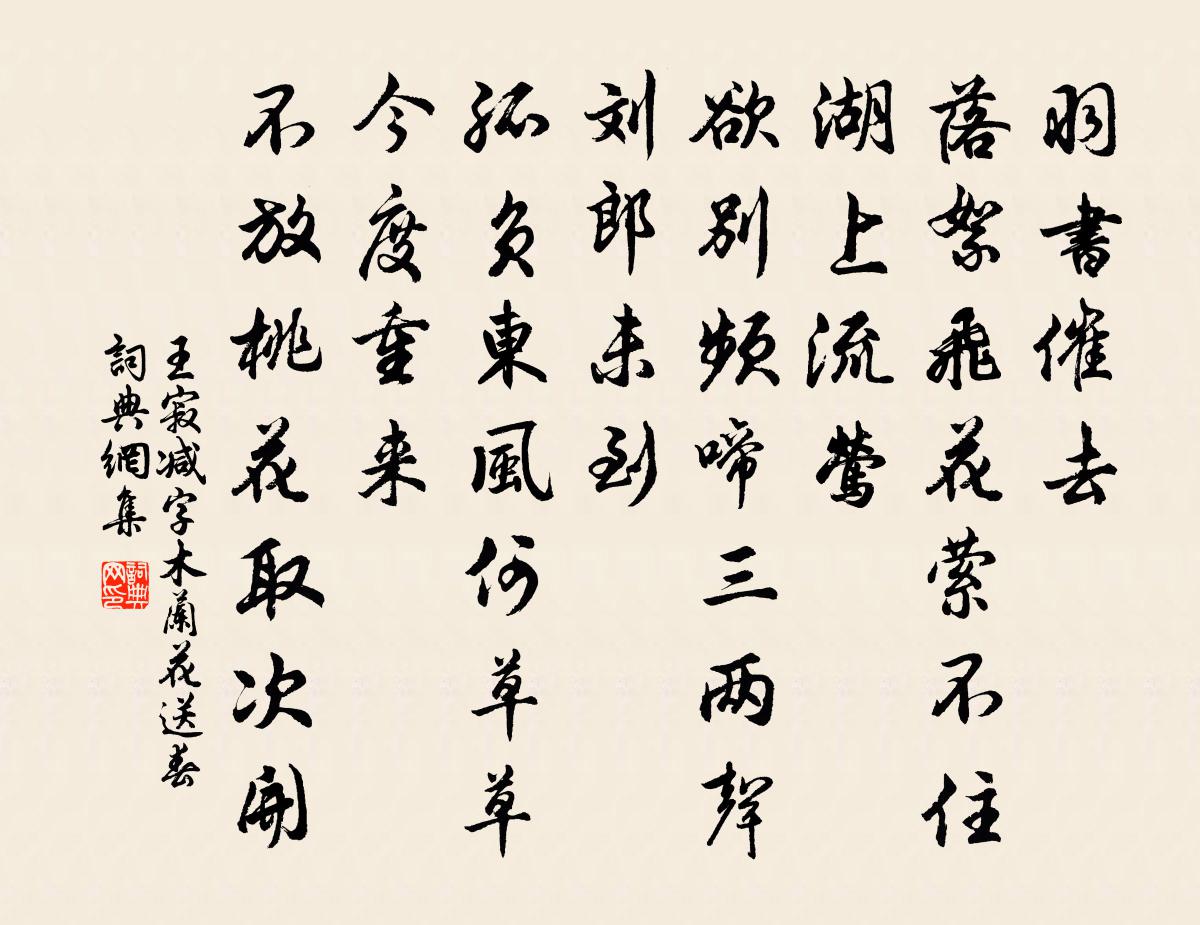 羽書催去
落絮飛花萦不住
湖上流莺
欲别頻啼三两聲
刘郎未到
孤负東風何草草
今度重来
不放桃花取次開
王寂减字木蘭花送春
詞典網集
詞典网印